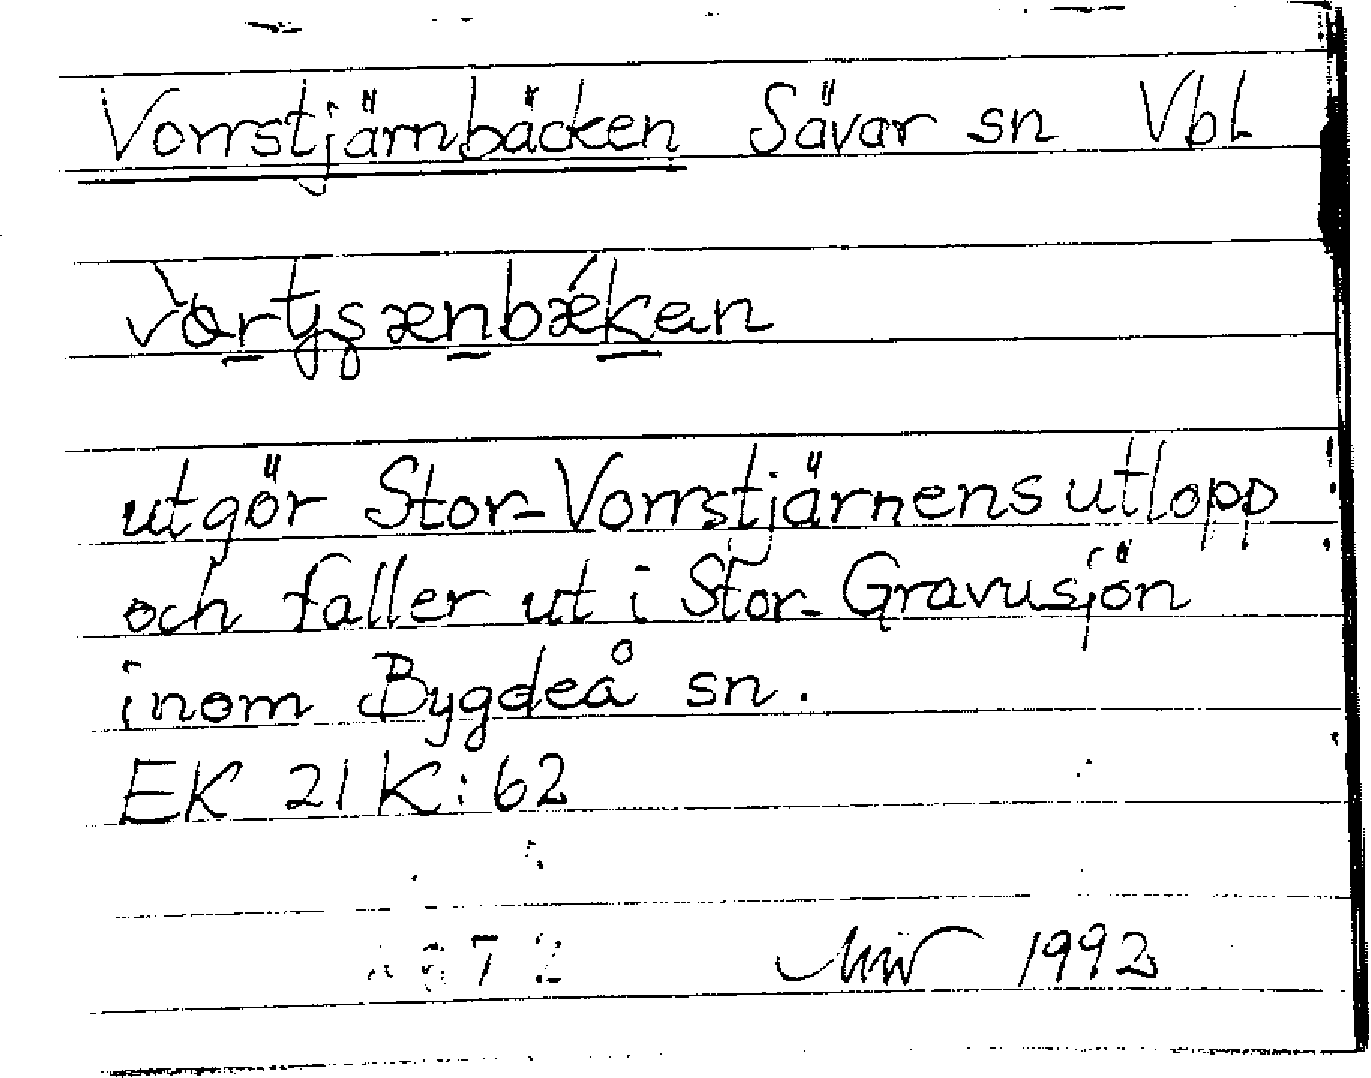 Vorrstjärnbäcken Sävar sn Vbl
utgör Stor-Vorrstjärnens utlopp
och faller ut i Stor-Gravusjön
inom Bygdeå sn.
EK 21 K:62
1992